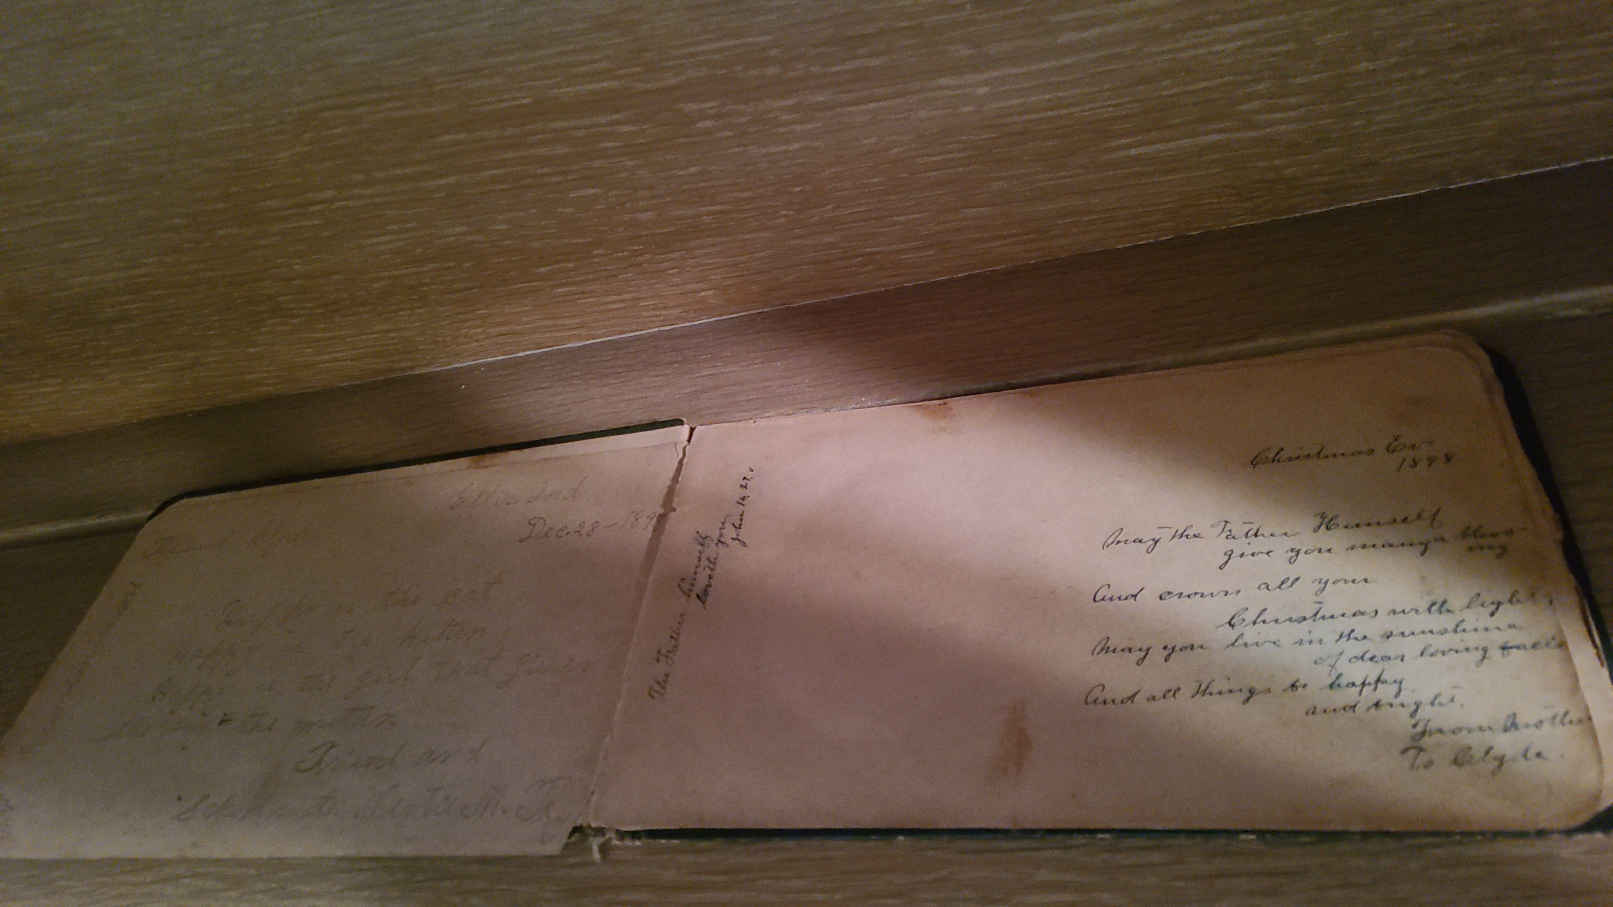 Dec. 28 - 189
is the cat
kitten
Happy is the girl that
the mitten
Friend and
Schoolmate
The Father himself
loveth you
John 16.27.
Christmas Ev-
1898
May the Father Himself
give you many a bless-
ing
And crown all your
Christmas with light,
May you live in the sunshine
of dear loving faces
And all things be happy
and bright.
From Mother
To Clyde.